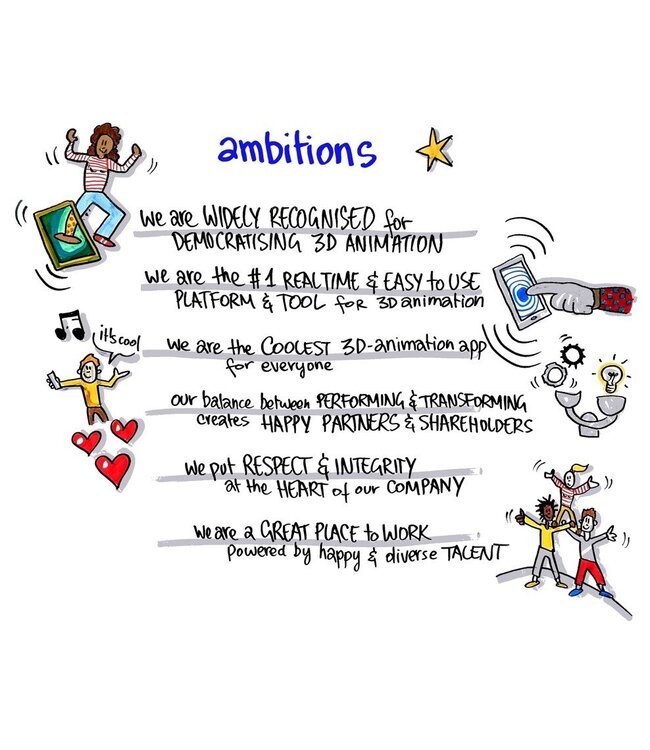 ambitions
We are WIDELY RECOGNISED for
DEMOCRATISING 3D ANIMATION
We are the #1 REALTIME & EASY to USE
PLATFORM & TOOL for 3D animation
it's cool
We are the COOLEST 3D-animation app
for everyone
our balance between PERFORMING & TRANSFORMING
creates HAPPY PARTNERS & SHAREHOLDERS
We put RESPECT & INTEGRITY
at the HEART of our COMPANY
We are a GREAT PLACE to WORK
powered by happy & diverse TALENT